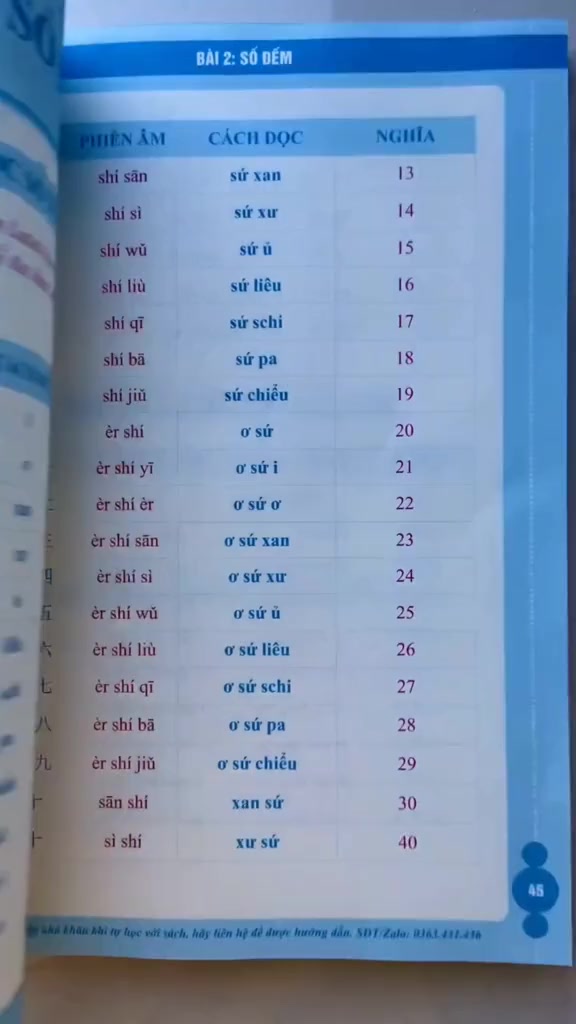 SỐ
BÀI 2: SỐ ĐẾM
PHIÊN ÂM CÁCH ĐỌC NGHĨA
shí sān sứ xan 13
shí sì sứ xư 14
shí wǔ sứ ủ 15
shí liù sứ liêu 16
shí qī sứ schi 17
shí bā sứ pa 18
shí jiǔ sứ chiểu 19
èr shí ơ sứ 20
èr shí yī ơ sứ i 21
èr shí èr ơ sứ ơ 22
三 èr shí sān ơ sứ xan 23
四 èr shí sì ơ sứ xư 24
五 èr shí wǔ ơ sứ ủ 25
六 èr shí liù ơ sứ liêu 26
七 èr shí qī ơ sứ schi 27
八 èr shí bā ơ sứ pa 28
九 èr shí jiǔ ơ sứ chiểu 29
十 sān shí xan sứ 30
十 sì shí xư sứ 40
45
khó khăn khi tự học với sách, hãy liên hệ để được hướng dẫn. SĐT/Zalo: 0363.431.436